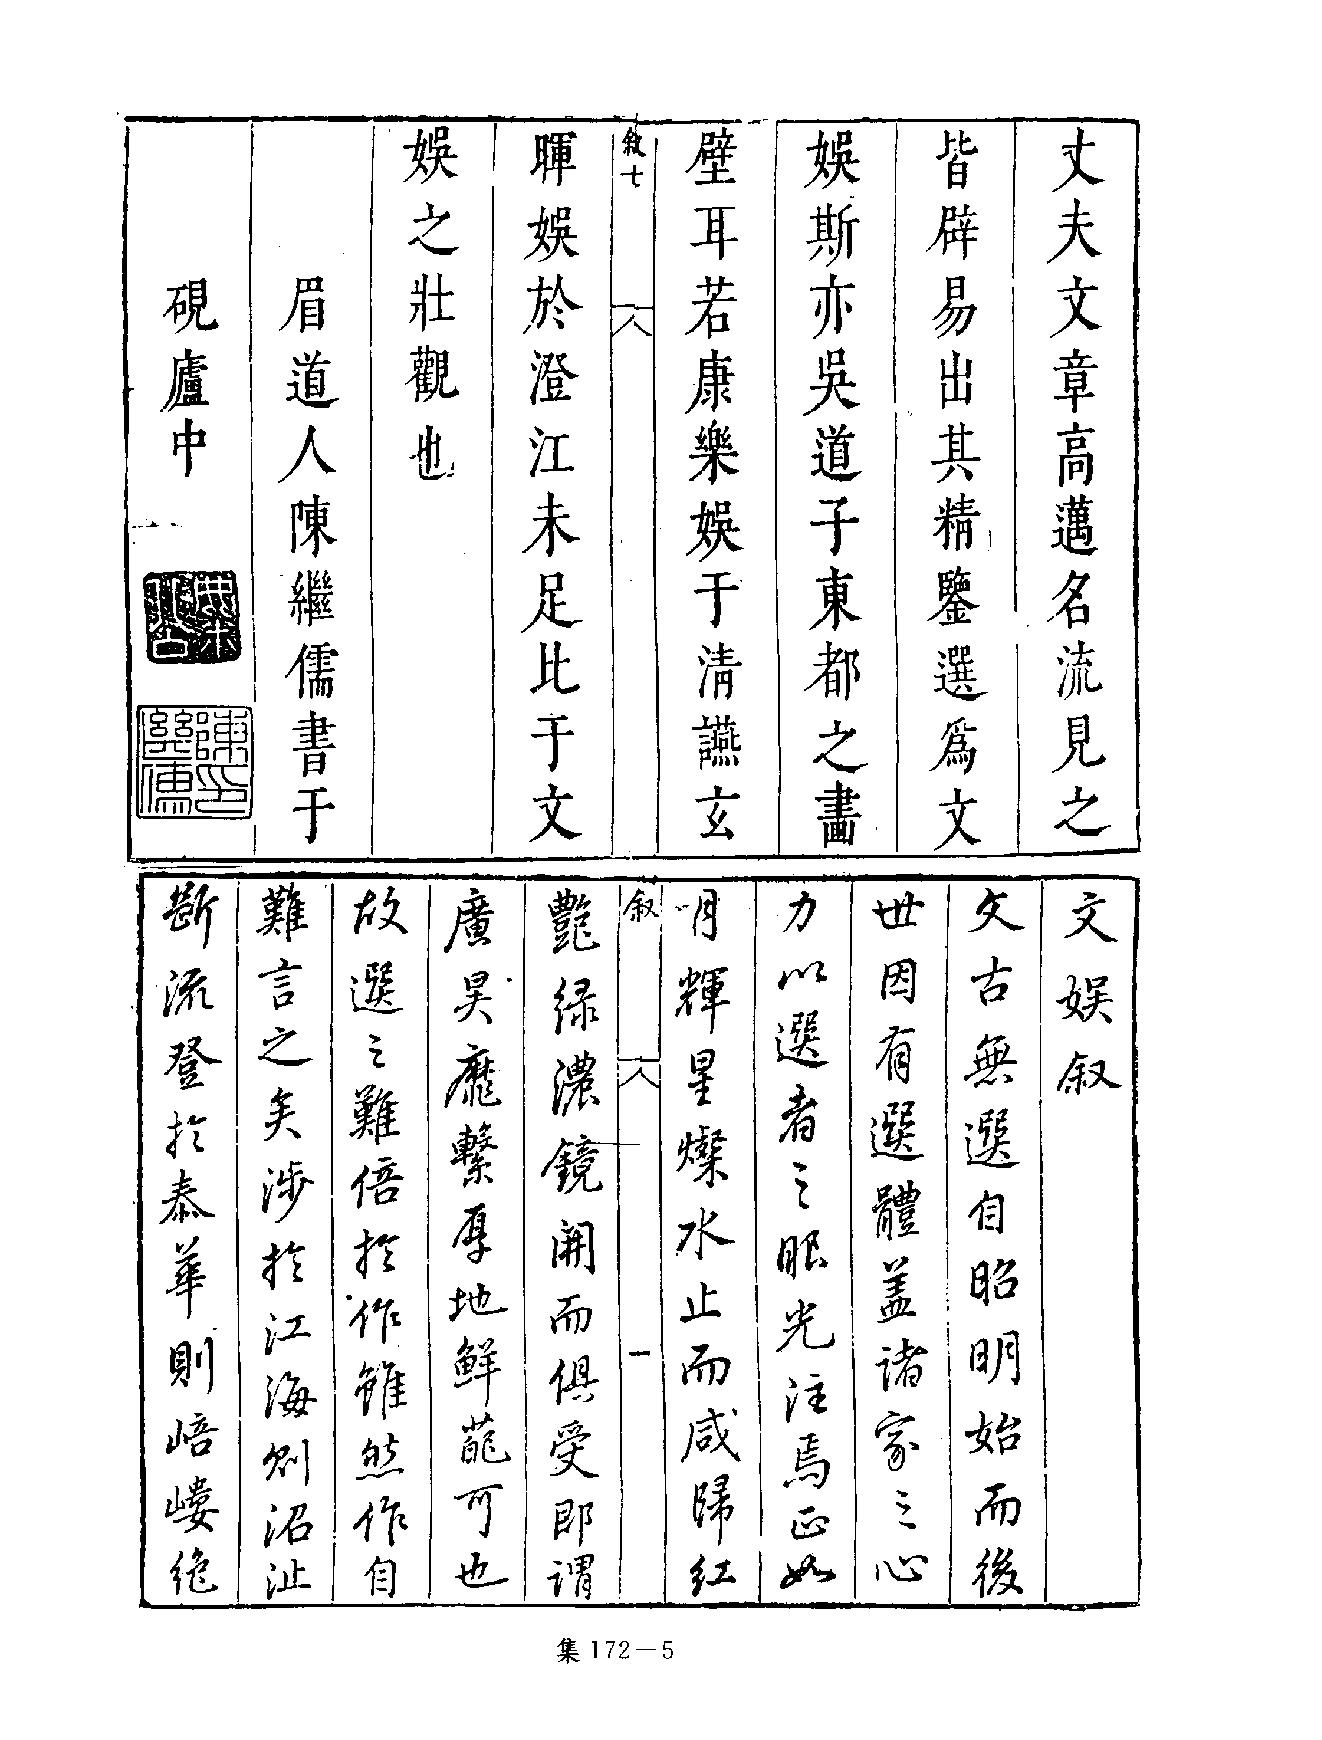 丈夫文章高邁名流見之
皆辟易出其精鑒選爲文
娛斯亦吳道子東都之畫
壁耳若康樂娛于清讌玄
敘七
八
暉娛於澄江未足比于文
娛之壯觀也
眉道人陳繼儒書于
硯廬中
陳印繼儒
文娱叙
文古無選自昭明始而後
世因有選體盖諸家之心
力以選者之眼光注焉正如
明輝星燦水止而咸歸紅
叙
八
一
艷緑濃鏡開而俱受即谓
廣昊靡繫厚地鮮葩可也
故選之難倍於作雖然作自
難言之矣涉於江海則沼沚
斷流登於泰華則嵣嶁绝
集172－5